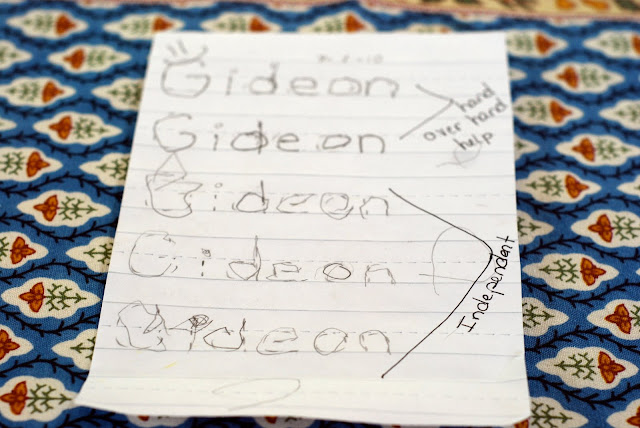 Gideon
Gideon
hand
over hand
help
Gideon
Gideon
Independent
Gideon